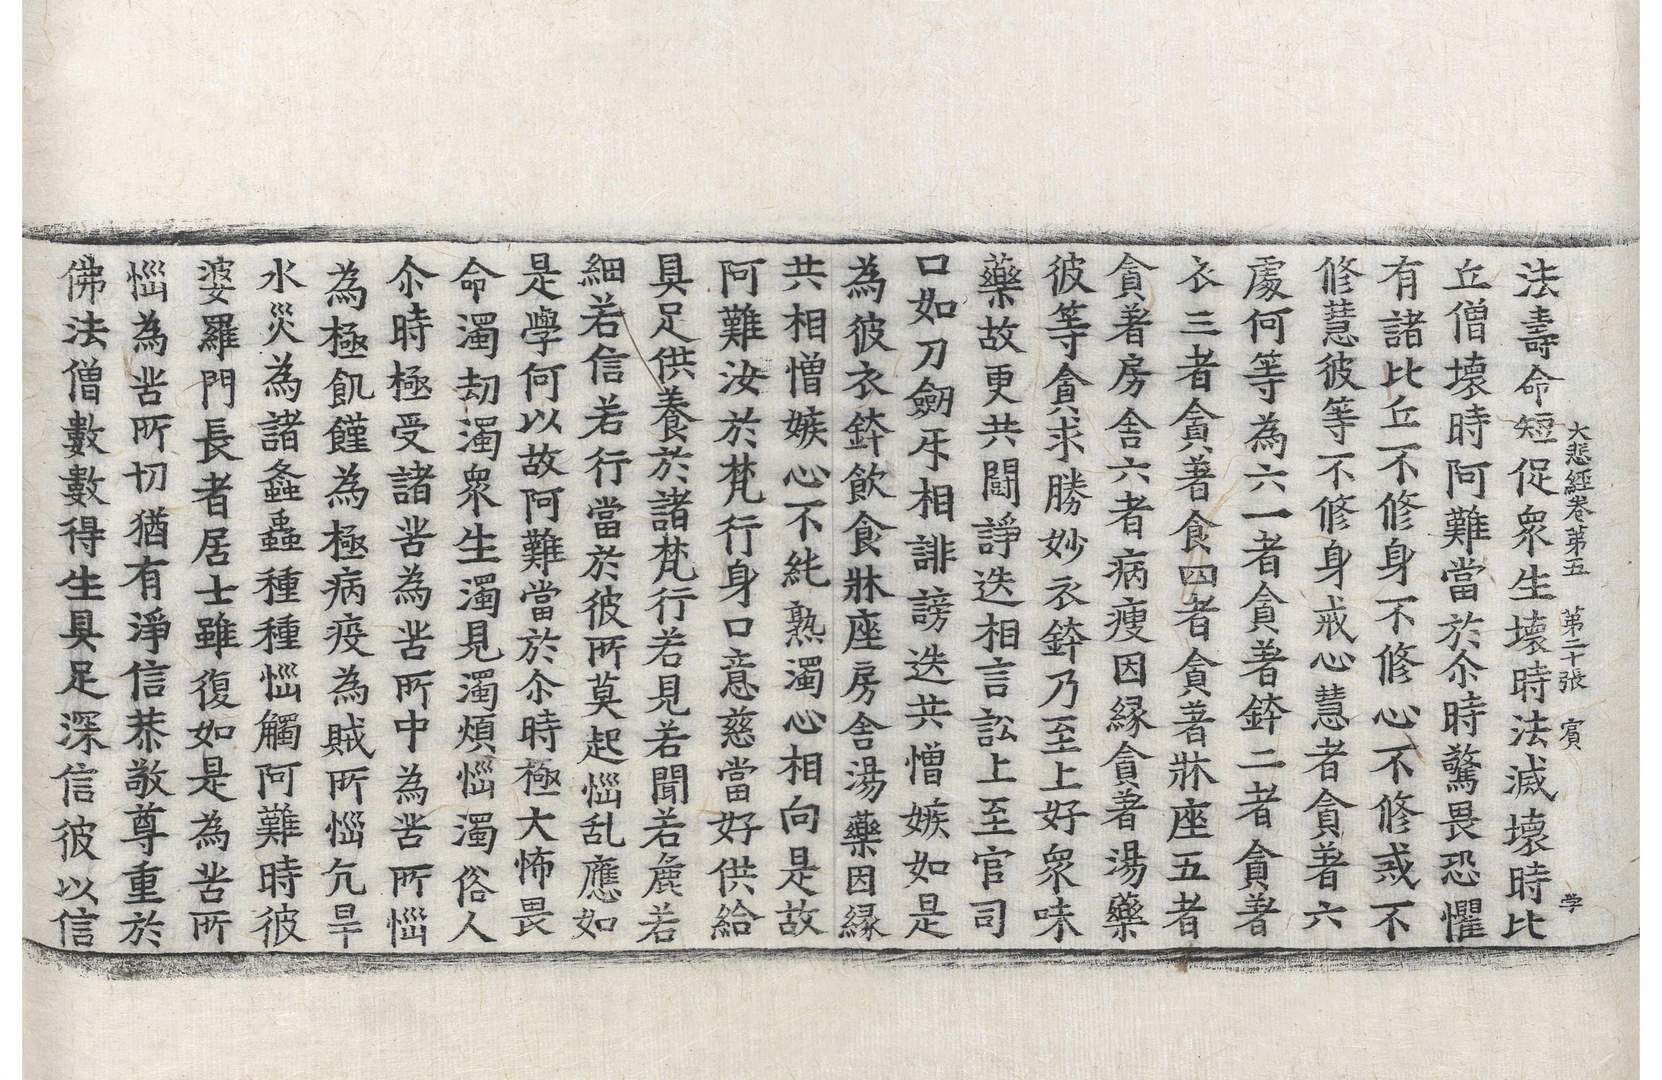 大悲經卷第五 第二十張 賓 孝
法壽命短促衆生壞時法滅壞時比
丘僧壞時阿難當於尒時驚畏恐懼
有諸比丘不修身不修心不修戒不
修慧彼等不修身戒心慧者貪著六
處何等為六一者貪著鉢二者貪著
衣三者貪著食四者貪著牀座五者
貪著房舍六者病瘦因緣貪著湯藥
彼等貪求勝妙衣鉢乃至上好衆味
藥故更共鬪諍迭相言訟上至官司
口如刀劒牙相誹謗迭共憎嫉如是
為彼衣鉢飲食牀座房舍湯藥因緣
共相憎嫉心不純熟濁心相向是故
阿難汝於梵行身口意慈當好供給
具足供養於諸梵行若見若聞若麁若
細若信若行當於彼所莫起惱乱應如
是學何以故阿難當於尒時極大怖畏
命濁劫濁衆生濁見濁煩惱濁俗人
尒時極受諸苦為苦所中為苦所惱
為極飢饉為極病疫為賊所惱亢旱
水災為諸螽蟲種種惱觸阿難時彼
婆羅門長者居士雖復如是為苦所
惱為苦所切猶有淨信恭敬尊重於
佛法僧數數得生具足深信彼以信